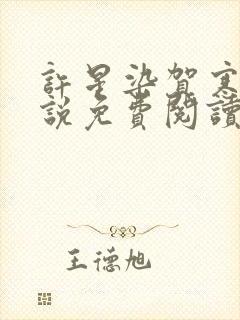 許星染賀寒
說免費閱讀
王德旭